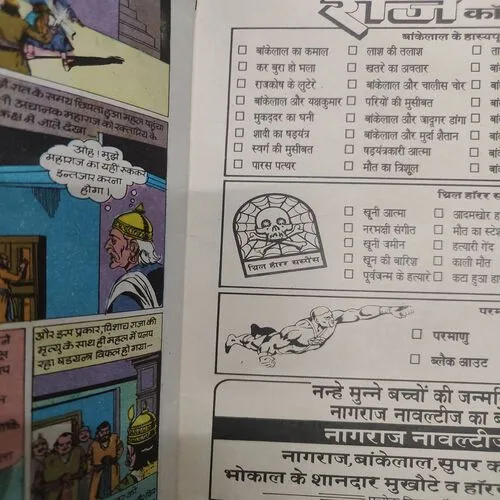 रात के समय छिपता हुआ महल पहुंचा
अचानक महाराज को रक्तप्रिय के
कक्ष में जाते देखा-
ओह! मुझे
महाराज का यहीं रुककर
इन्तजार करना
होगा।
और इस प्रकार, पिशाच राजा की
मृत्यु के साथ ही महल में पनप
रहा षडयन्त्र विफल हो गया-
राज
बांकेलाल के हास्यपू
बांकेलाल का कमाल
कर बुरा हो भला
राजकोष के लुटेरे
बांकेलाल और यक्षकुमार
मुकद्दर का धनी
शादी का षड़यंत्र
स्वर्ग की मुसीबत
पारस पत्थर
लाश की तलाश
खतरे का अवतार
बांकेलाल और चालीस चोर
परियों की मुसीबत
बांकेलाल और जादूगर डांगा
बांकेलाल और मुर्दा शैतान
षड़यंत्रकारी आत्मा
मौत का त्रिशूल
थ्रिल हॉरर स
थ्रिल हॉरर सस्पेंस
खूनी आत्मा
नरभक्षी संगीत
खूनी जमीन
खून की बारिश
पूर्वजन्म के हत्यारे
आदमखोर
मौत का स्टे
हत्यारी गेंद
काली मौत
कटा हुआ हा
परम
परमाणु
ब्लैक आउट
नन्हे मुन्ने बच्चों की जन्मदि
नागराज नावल्टीज का ब
नागराज नावल्टीज
नागराज, बांकेलाल, सुपर क
भोकाल के शानदार मुखौटे व हॉर